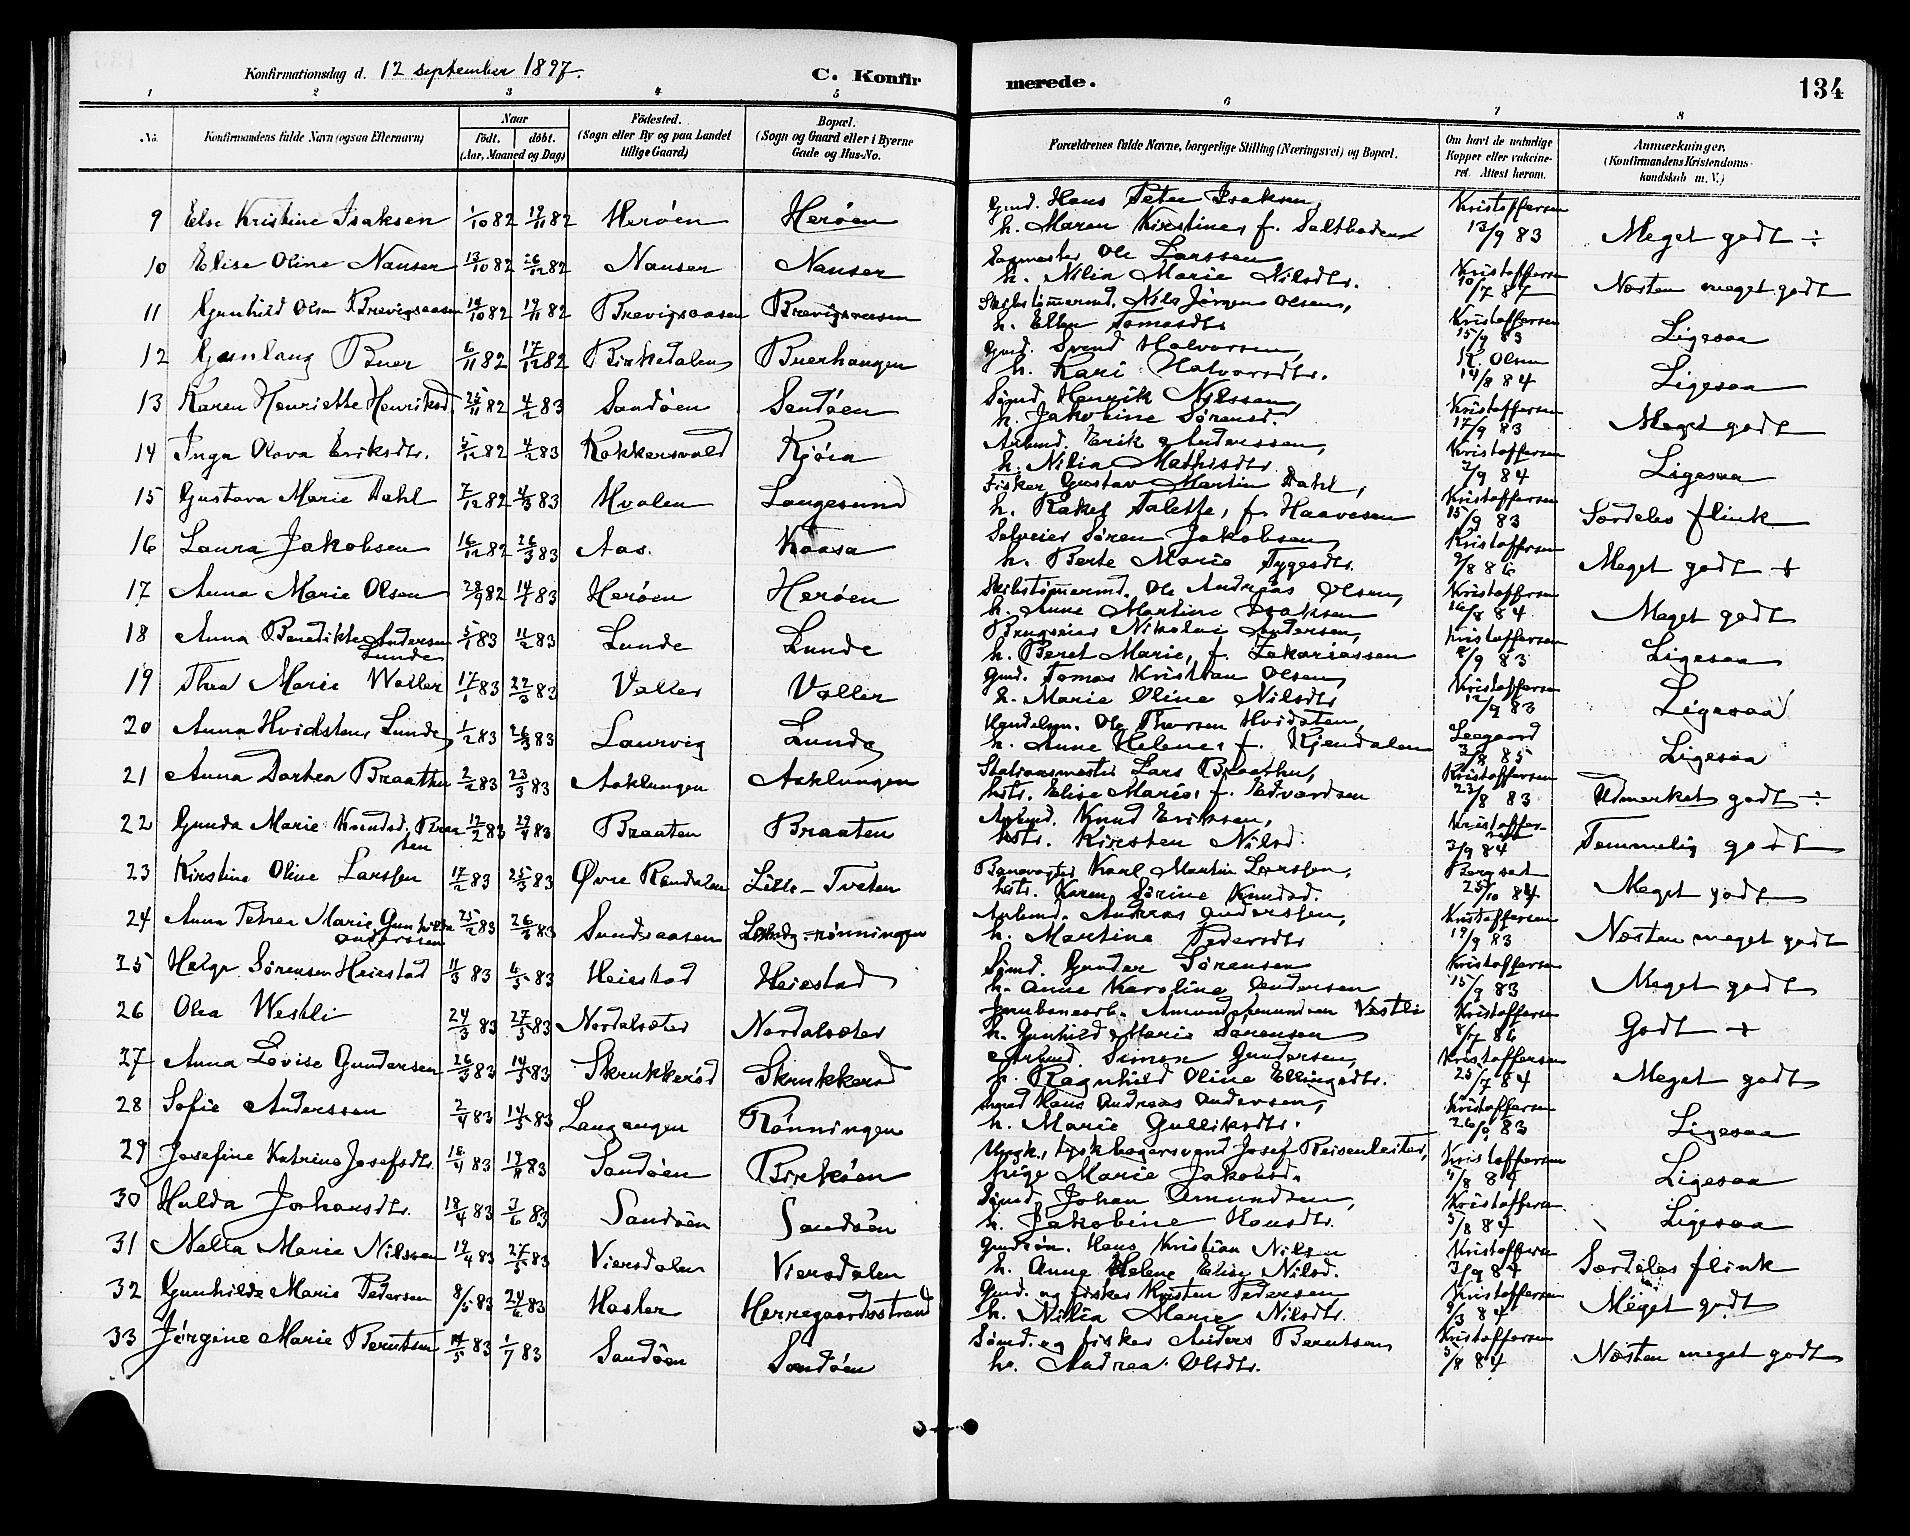 Konfirmationsdag d. 12 september 1897.
C. Konfir
merede.
134
1 2 3 4 5 6 7 8
No.
Konfirmandens fulde Navn (ogsaa Efternavn)
Naar
Födt. döbt.
(Aar, Maaned og Dag)
Födested.
(Sogn eller By og paa Landet
tillige Gaard)
Bopæl.
(Sogn og Gaard eller i Byerne
Gade og Hus-No.
Forældrenes fulde Navne, borgerlige Stilling (Næringsvei) og Bopæl.
Om havt de naturlige
Kopper eller vakcine-
ret. Attest herom.
Anmærkninger.
(Konfirmandens Kristendoms-
kundskab m. V.)
9 Else Kristine Isaksen 1/10 82 19/11 82 Herøen Herøen Gmd. Hans Peter Isaksen, Kristoffersen
h. Maren Kirstine, f. Saltboden 13/9 83 Meget godt ÷
10 Elise Oline Nanser 13/10 82 26/12 82 Nanser Nanser Sagmester Ole Larssen Kristoffersen
h. Nilia Marie Nilsdtr. 10/7 87 Næsten meget godt
11 Gunhild Olsen Brevigsaasen 14/10 82 19/11 82 Brevigsaasen Brevigsaasen Skibstømmermd. Nils Jørgen Olsen, Kristoffersen
h. Ellen Tomasdtr 15/9 83 Ligesaa
12 Gunlaug Buer 6/11 82 17/12 82 Birkedalen Buerhaugen Gmd. Svend Halvorsen, K. Olsen
h. Kari Halvorsdtr. 14/8 84 Ligesaa
13 Karen Henriette Henriksd. 25/11 82 4/2 83 Sandøen Sandøen Sømd Henrik Nilssen, Kristoffersen
h. Jakobine Sørensd. 17/9 83 Meget godt
14 Inga Olava Eriksdtr. 5/12 82 4/2 83 Kokkersvold Kjøia Arbmd. Erik Anderssen, Kristoffersen
h. Nilia Mathisdtr. 2/9 84 Ligesaa
15 Gustava Marie Dahl 7/12 82 4/3 83 Hvalen Langesund Fisker Gustav Martin Dahl, Kristoffersen
h. Rakel Talette, f. Haavesen 15/9 83 Særdeles flink
16 Laura Jakobsen 16/12 82 26/3 83 Aas. Kaasa Selveier Søren Jakobsen, Kristoffersen
h. Berte Marie Tygesdtr. 9/8 86 Meget godt +
17 Anna Marie Olsen 28/9 82 14/1 83 Herøen Herøen Skibstømmermd. Ole Andreas Olsen, Kristoffersen
h. Anne Martine Isaksen 16/8 84 Meget godt
18 Anna Benedikte Andersen
Lunde 5/1 83 11/2 83 Lunde Lunde Brugseier Nikolai Andersen, Kristoffersen
h. Beret Marie, f. Zakariassen 8/9 83 Ligesaa
19 Thea Marie Valler 17/1 83 22/3 83 Valler Valler Gmd. Tomas Kristian Olsen, Kristoffersen
h. Marie Oline Nilsdtr 12/9 83 Ligesaa
20 Anna Hvidsten Lunde 1/2 83 26/3 83 Laurvig Lunde Handelsm. Ole Thorsen Hvidsten, Leegaard
h. Anne Helene, f. Kjendalen 3/8 85 Ligesaa
21 Anna Dortea Braathen 2/2 83 23/3 83 Aaklungen Aaklungen Stationsmester Lars Braathen, Kristoffersen
hstr. Elise Marie, f. Edvardsen 23/8 83 Udmerket godt ÷
22 Gunda Marie Knudsd. Braa-
ten 12/2 83 29/4 83 Braaten Braaten Arbmd. Knud Eriksen, Kristoffer-
hstr. Kirsten Nilsd. 2/9 84 Temmelig godt
23 Kirstine Oline Larssen 17/2 83 25/3 83 Øvre Røndalen Lille-Tveten Banevogter Karl Martin Larssen, Bergset
hstr. Karen Sørine Knudsd. 25/10 84 Meget godt
24 Anna Petrea Marie Gunhilde
Anderssen 25/2 83 26/3 83 Sundsaasen Lunde-rønningen Arbmd. Andreas Anderssen, Kristoffersen
h. Martine Pedersdtr 19/9 83 Næsten meget godt
25 Helge Sørensen Heiestad 11/3 83 6/5 83 Heiestad Heiestad Sømd. Gunder Sørensen Kristoffersen
h. Anne Karoline Andersen 15/9 83 Meget godt
26 Olea Westli 24/3 83 27/5 83 Nordalsæter Nordalsæter Jernbanearb. Amund Amundsen Vestli Kristoffersen
h. Gunhild Marie Sørensen 8/7 86 Godt +
27 Anna Lovise Gundersen 26/3 83 14/5 83 Skrukkerød Skrukkerød Arbmd. Simon Gundersen, Kristoffersen
h. Ragnhild Oline Ellingsdtr. 25/7 84 Meget godt
28 Sofie Anderssen 2/4 83 14/5 83 Langangen Rønningen Hans Andreas Andersen, Kristoffersen
h. Marie Gulliksdtr. 26/9 83 Ligesaa
29 Josefine Katrine Josefsdtr. 16/4 83 19/8 83 Sandøen Birkøen Ungk., tysk bagersvend Josef Reisenleiter, Kristoffersen
pige Marie Jakobsd. 4/8 84 Ligesaa
30 Hulda Johansdtr. 18/4 83 3/6 83 Sandøen Sandøen Sømd. Johan Amundsen, Kristoffersen
h. Jakobine Hansdtr. 5/8 84 Ligesaa
31 Nella Marie Nilssen 19/4 83 27/5 83 Viersdalen Viersdalen Gmdssøn. Hans Kristian Nilsen Kristoffersen
h. Anne Helene Elise Nilsd. 3/9 84 Særdeles flink
32 Gunhilde Marie Pedersen 8/5 83 24/6 83 Hasler Herregaardsstrand Gmd. og fisker Kristen Pedersen Kristoffersen
h. Nilia Marie Nilsdtr. 9/3 84 Meget godt
33 Jørgine Marie Berntsen 14/5 83 1/7 83 Sandøen Sandøen Sømd. og fisker Anders Berntsen, Kristoffersen
h. Andrea Olsdtr. 5/8 84 Næsten meget godt